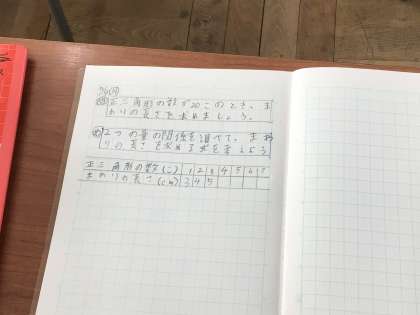 問 正三角形の数が20このとき、ま
わりの長さを求めましょう。
め 2つの量の関係を調べて、まわ
りの長さを求める式を考えよう
正三角形の数(こ) 1 2 3 4 5 6 7
まわりの長さ(cm) 3 4 5